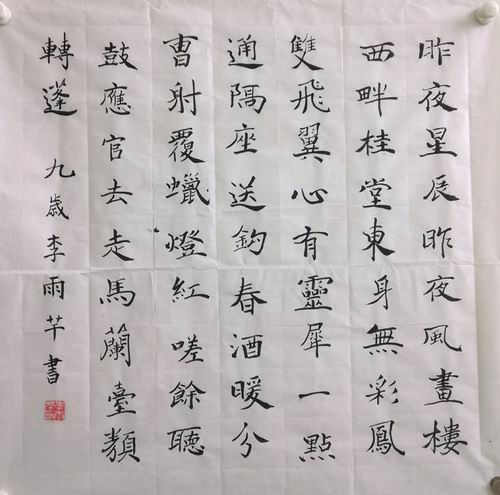 昨夜星辰昨夜風畫樓
西畔桂堂東身無彩鳳
雙飛翼心有靈犀一點
通隔座送鈎春酒暖分
曹射覆蠟燈紅嗟餘聽
鼓應官去走馬蘭臺類
轉蓬 九歲李雨芊書